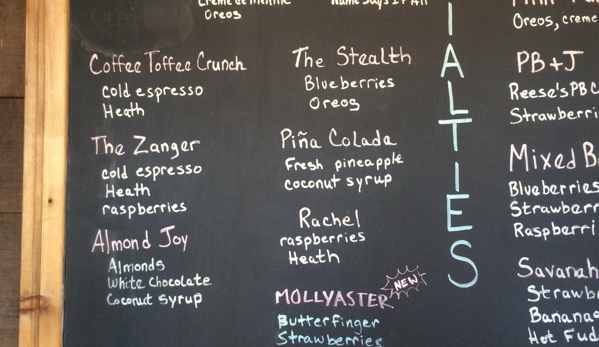 creme de menthe
Oreos
Name says it All
Coffee Toffee Crunch
cold espresso
Heath
The Zanger
cold espresso
Heath
raspberries
Almond Joy
Almonds
White Chocolate
Coconut syrup
The Stealth
Blueberries
Oreos
Piña Colada
Fresh pineapple
coconut syrup
Rachel
raspberries
Heath
MOLLYASTER NEW
Butterfinger
Strawberries
IALTIES
Oreos, creme
PB+J
Reese's PB C
Strawberri
Mixed B
Blueberries
Strawberr
Raspberri
Savanah
Strawb
Banana
Hot Fud